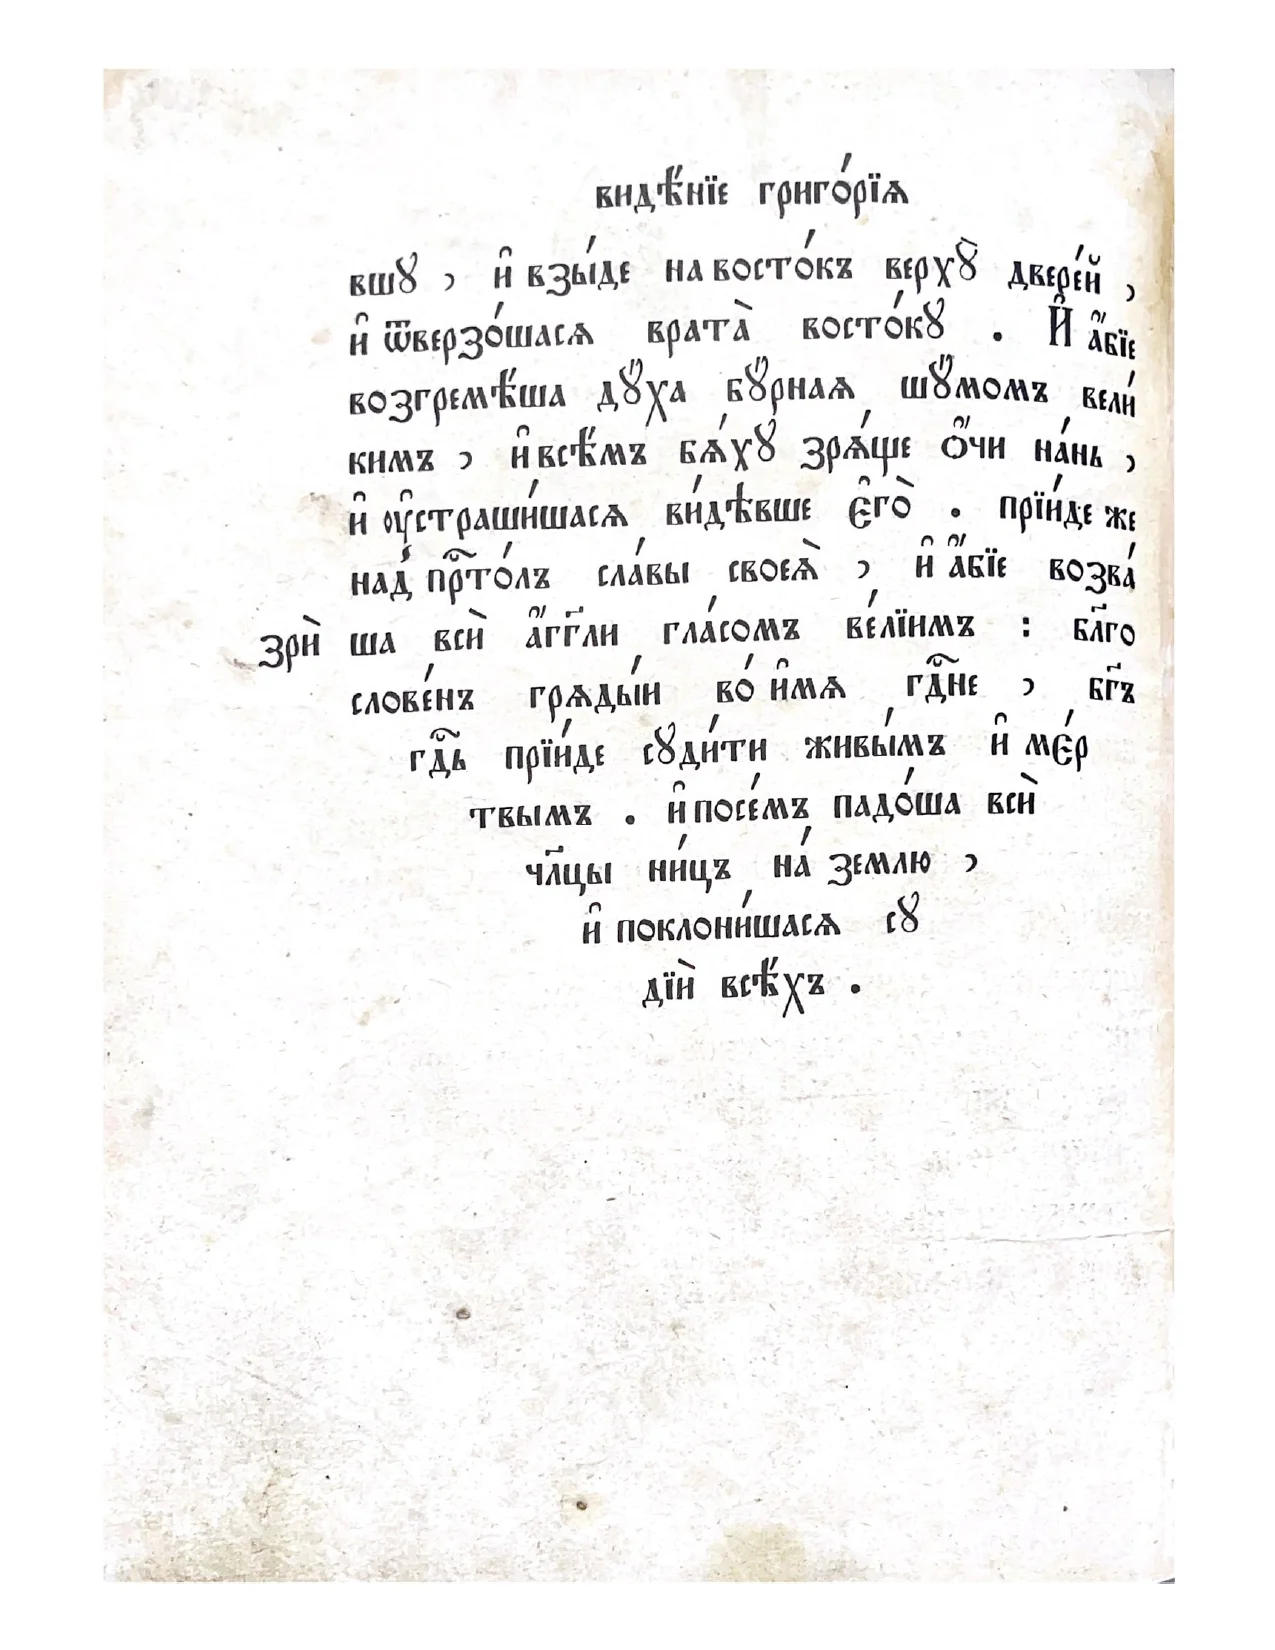 видѣ́нїе григо́рїѧ
вшꙋ , и҆ взы́де на восто́къ верхꙋ̀ двере́й ,
и҆ ѿверзо́шасѧ врата̀ восто́кꙋ . И҆ а҆́бїе
возгремѣ́ша дꙋ́ха бꙋ́рнаѧ шꙋ́момъ вели́
кимъ , и҆ всѣ́мъ бѧ́хꙋ зрѧ́ще ѻ҆́чи на́нь ,
и҆ ᲂу҆страши́шасѧ ви́дѣвше є҆го̀ . прїи́де же
над̾ прⷭ҇то́лъ сла́вы своеѧ̀ , и҆ а҆́бїе возва́
зрѝ ша всѝ а҆́гг҃ли гла́сомъ ве́лїимъ : бл҃го
слове́нъ грѧды́и во́ и҆мѧ гдⷭ҇не , бг҃ъ
гдⷭ҇ь прїи́де сꙋди́ти живы́мъ и҆ ме́р
твымъ . и҆ посе́мъ падо́ша всѝ
чл҃цы ни́цъ на́ землю ,
и҆ поклони́шасѧ сꙋ
дїѝ всѣ́хъ .